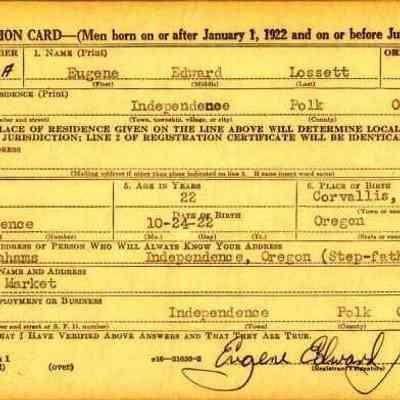 ION CARD—(Men born on or after January 1, 1922 and on or before Ju
BER 1. NAME (Print) OR
A Eugene Edward Lossett O
(First) (Middle) (Last)
ESIDENCE (Print)
Independence Polk O
ber and street) (Town, township, village, or city) (County)
LACE OF RESIDENCE GIVEN ON THE LINE ABOVE WILL DETERMINE LOCAL
JURISDICTION; LINE 2 OF REGISTRATION CERTIFICATE WILL BE IDENTICA
DRESS
(Mailing address if other than place indicated on line 2. If same insert word same)
5. AGE IN YEARS 6. PLACE OF BIRTH
22 Corvallis,
DATE OF BIRTH (Town or
ence 10-24-22 Oregon
(Number) (Mo.) (Day) (Yr.) (State or
DDRESS OF PERSON WHO WILL ALWAYS KNOW YOUR ADDRESS
hams Independence, Oregon (Step-fath
NAME AND ADDRESS
Market
PLOYMENT OR BUSINESS
Independence Polk O
ber and street or R. F. D. number) (Town) (County)
HAT I HAVE VERIFIED ABOVE ANSWERS AND THAT THEY ARE TRUE.
1 Eugene Edward
(over) (Registrant's signature)